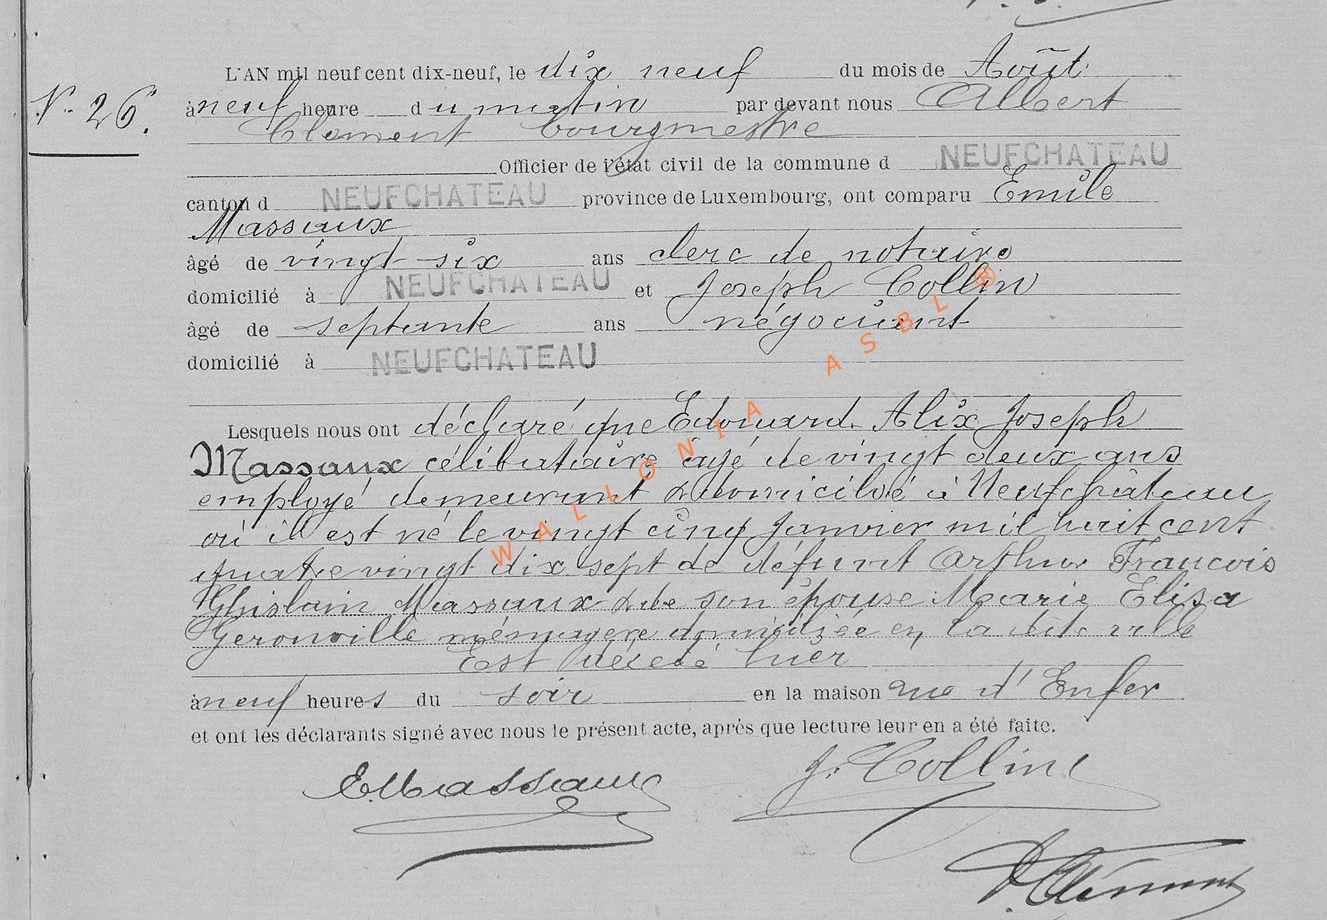 N. 26.
L'AN mil neuf cent dix-neuf, le dix neuf du mois de Août
à neuf heure du matin par devant nous Albert
Clement bourgmestre
Officier de l'état civil de la commune d NEUFCHATEAU
canton d NEUFCHATEAU province de Luxembourg, ont comparu Emile
Massaux
âgé de vingt-six ans clerc de notaire
domicilié à NEUFCHATEAU et Joseph Collin
âgé de septante ans négociant
domicilié à NEUFCHATEAU
Lesquels nous ont déclaré que Edouard Alix Joseph
Massaux célibataire âgé de vingt deux ans
employé demeurant & domicilié à Neufchâteau
où il est né le vingt cinq Janvier mil huit cent
quatre vingt dix sept de défunt Arthur Francois
Ghislain Massaux & de son épouse Marie Elisa
Geronville ménagère domiciliée en la dite ville
Est décédé hier
à neuf heures du soir en la maison rue d'Enfer
et ont les déclarants signé avec nous le présent acte, après que lecture leur en a été faite.
E. Massaux
J. Collin
A. Clément
WALLONIA ASBL ®